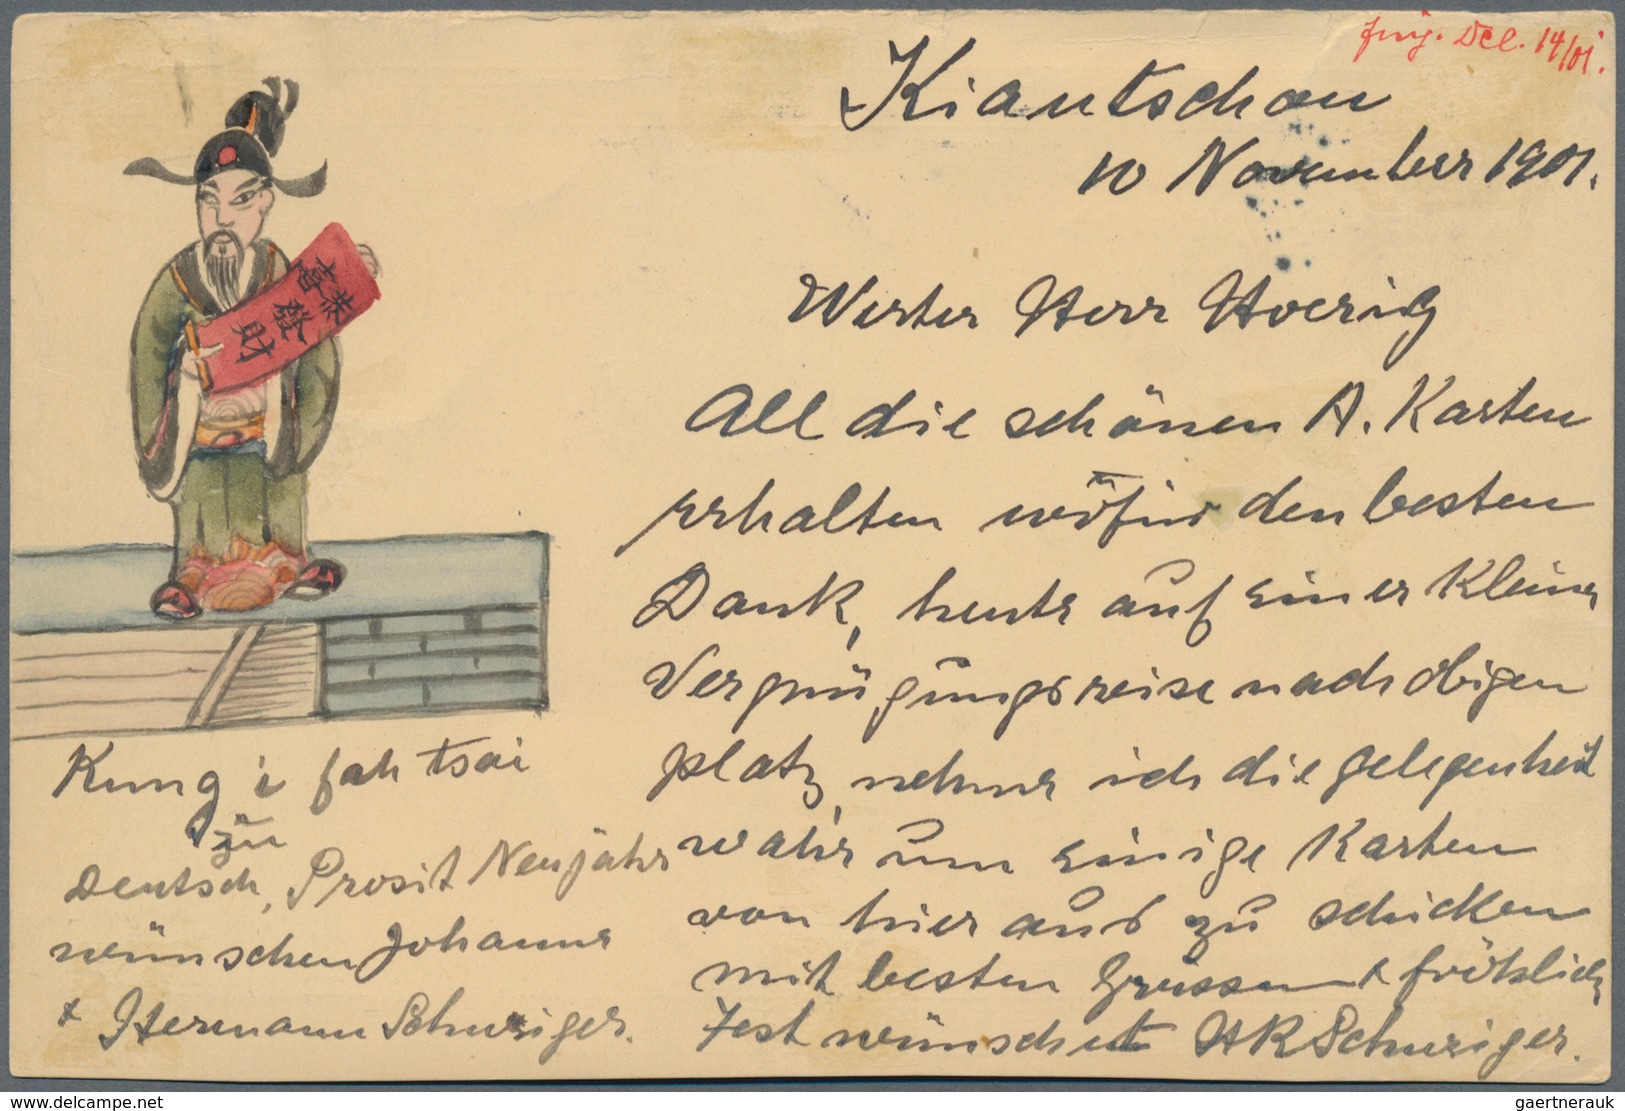 Dec. 14/01.
Kiautschou
10 November 1901.
Werter Herr Hoerig
All die schönen A. Karten
erhalten wofür den besten
Dank, heute auf einer kleinen
Vergnügungsreise nach obigen
platz, nehme ich die gelegenheit
wahr um einige Karten
von hier aus zu schicken
mit besten Grüssen & fröhlich
Fest wünscht HRSchwiger.
恭喜
發
財
Kung i fah tsai
zu
Deutsch, Prosit Neujahr
wünschen Johanne
& Hermann Schwiger.
www.delcampe.net
gaertnerauk